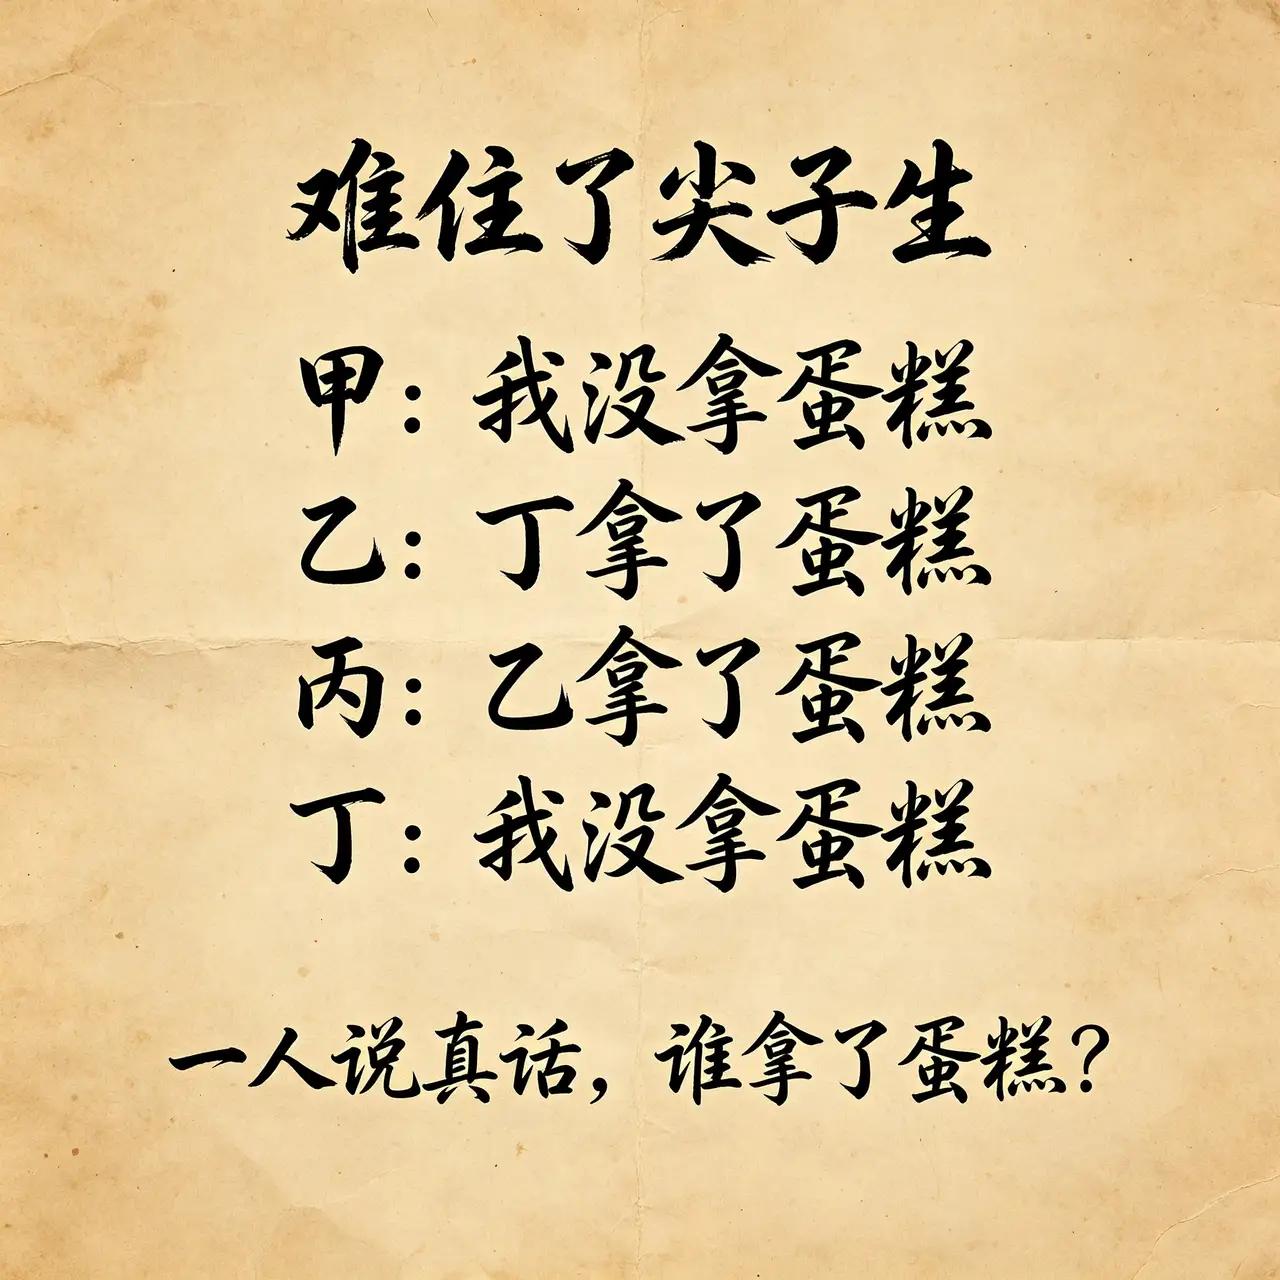 难住了尖子生
甲：我没拿蛋糕
乙：丁拿了蛋糕
丙：乙拿了蛋糕
丁：我没拿蛋糕
一人说真话，谁拿了蛋糕？